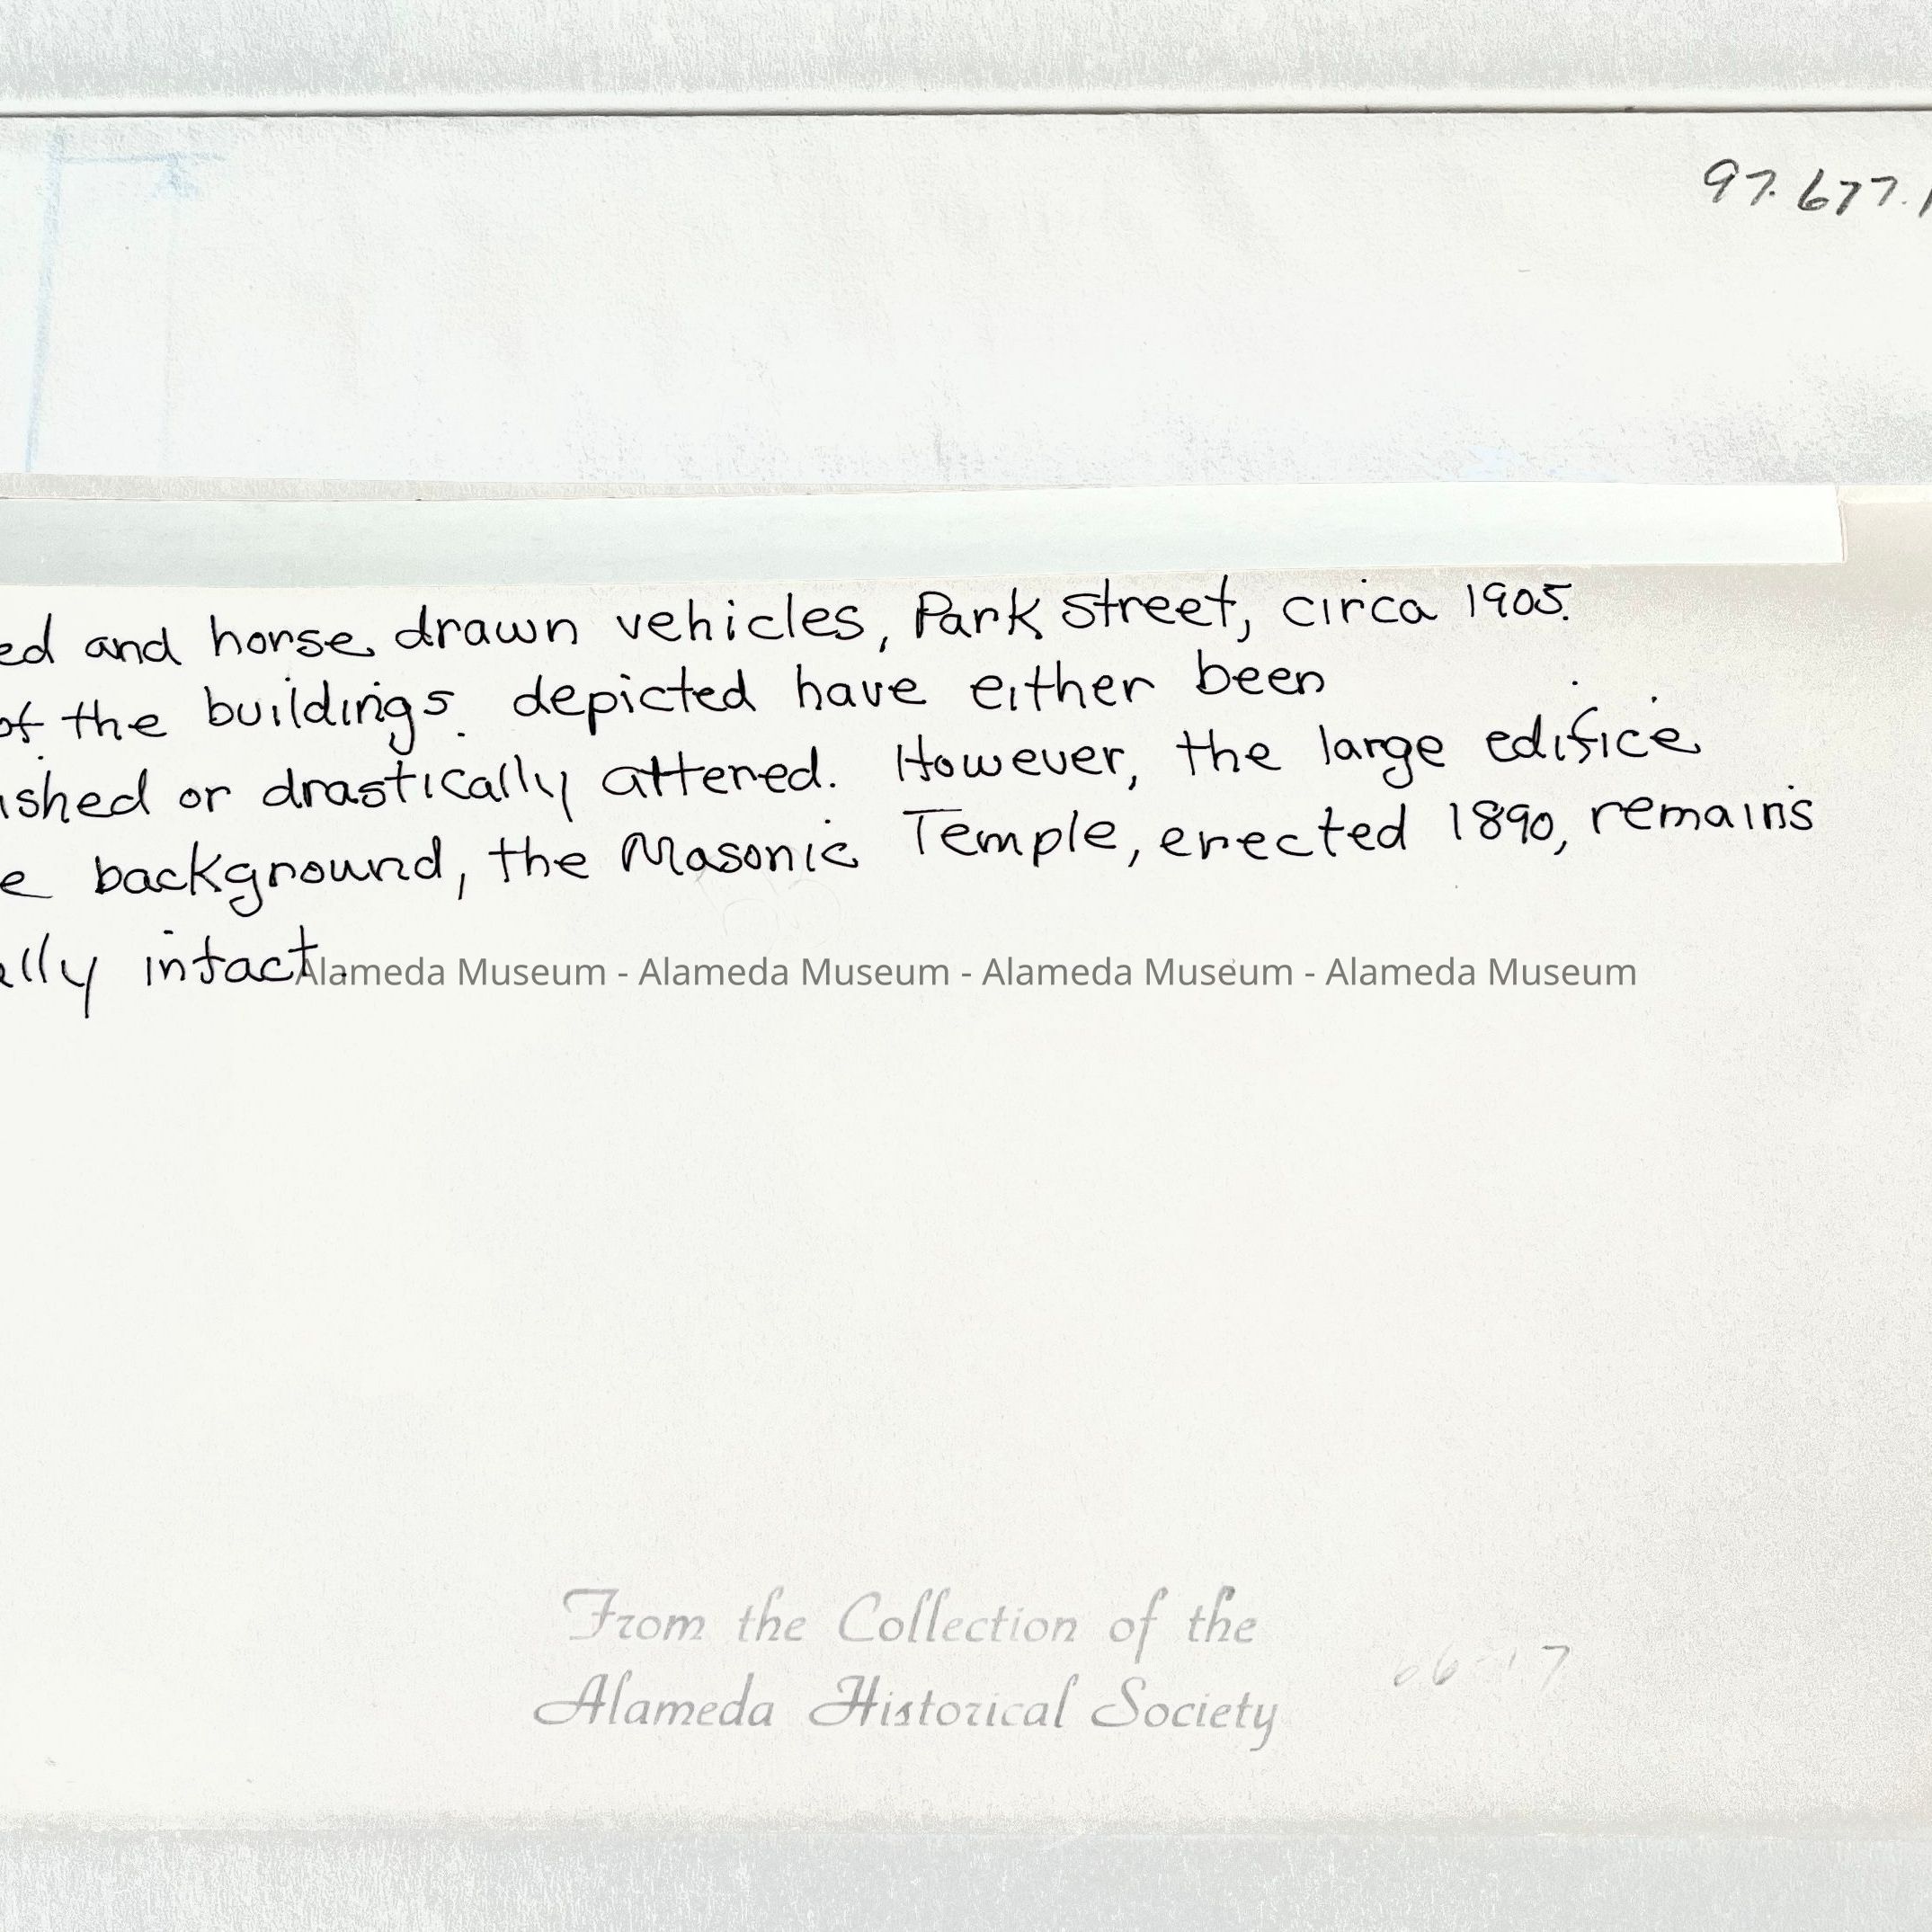 97.677.1
ed and horse drawn vehicles, Park Street, circa 1905.
of the buildings depicted have either been
ished or drastically altered. However, the large edifice
e background, the Masonic Temple, erected 1890, remains
ally intact.
Alameda Museum - Alameda Museum - Alameda Museum - Alameda Museum
From the Collection of the
Alameda Historical Society